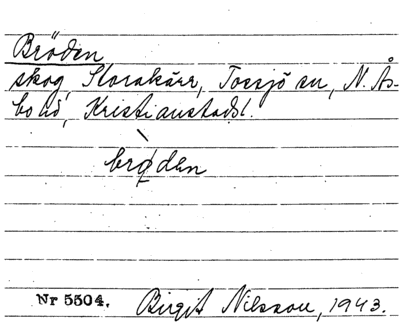 Bröden
skog, Storakärr, Tossjö sn, N. Ås-
bo hd, Kristianstads l.
brø̀den
Nr 5504. Birgit Nilsson, 1943.